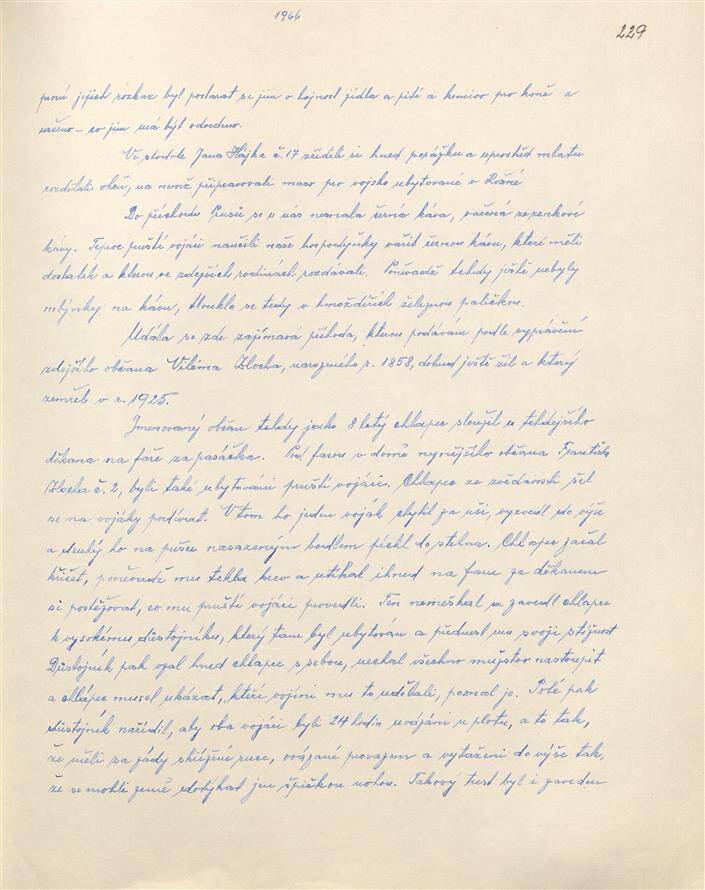 1966
229
první jejich rozkaz byl postarat se jim o hojnost jídla a pití a krmivo pro koně a
určeno - co jim má být odvedeno.
Ve stodole Jana Hájka č. 17 zřídili si hned porážku a uprostřed mlatu
rozdělali oheň, na němž připravovali maso pro vojsko ubytované v Rožné.
Do příchodu Prusů se u nás neznala černá káva, vařená ze zrnkové
kávy. Teprve pruští vojáci naučili naše hospodyňky vařit černou kávu, které měli
dostatek a kterou ve zdejších rodinách rozdávali. Poněvadž tehdy ještě nebyly
mlýnky na kávu, tloukla se tedy v hmoždířích železnou paličkou.
Udála se zde zajímavá příhoda, kterou podávám podle vyprávění
zdejšího občana Viléma Zlocha, narozeného r. 1858, dokud ještě žil a který
zemřel v r. 1925.
Jmenovaný občan tehdy jako 8 letý chlapec sloužil u tehdejšího
děkana na faře za pasáčka. Pod farou v domě nynějšího občana Františka
Zlocha č. 2, byli také ubytováni pruští vojáci. Chlapec ze zvědavosti šel
se na vojáky podívat. V tom ho jeden voják chytil za uši, vyzvedl do výše
a druhý ho na pušce nasazeným bodlem píchl do stehna. Chlapec začal
křičet, poněvadž mu tekla krev a utíkal ihned na faru za děkanem
si postěžovat, co mu pruští vojáci provedli. Ten nemeškal a zavedl chlapce
k vysokému důstojníku, který tam byl ubytován a přednesl mu svoji stížnost
Důstojník pak vzal hned chlapce s sebou, nechal všechno mužstvo nastoupit
a chlapec musel ukázat, kteří vojíni mu to udělali, poznal je. Poté pak
důstojník nařídil, aby oba vojáci byli 24 hodin uvázáni u plotu, a to tak,
že měli za zády skřížené ruce, svázané provazem a vytaženi do výše tak,
že se mohli země dotýkat jen špičkou nohou. Takový trest byl i zaveden